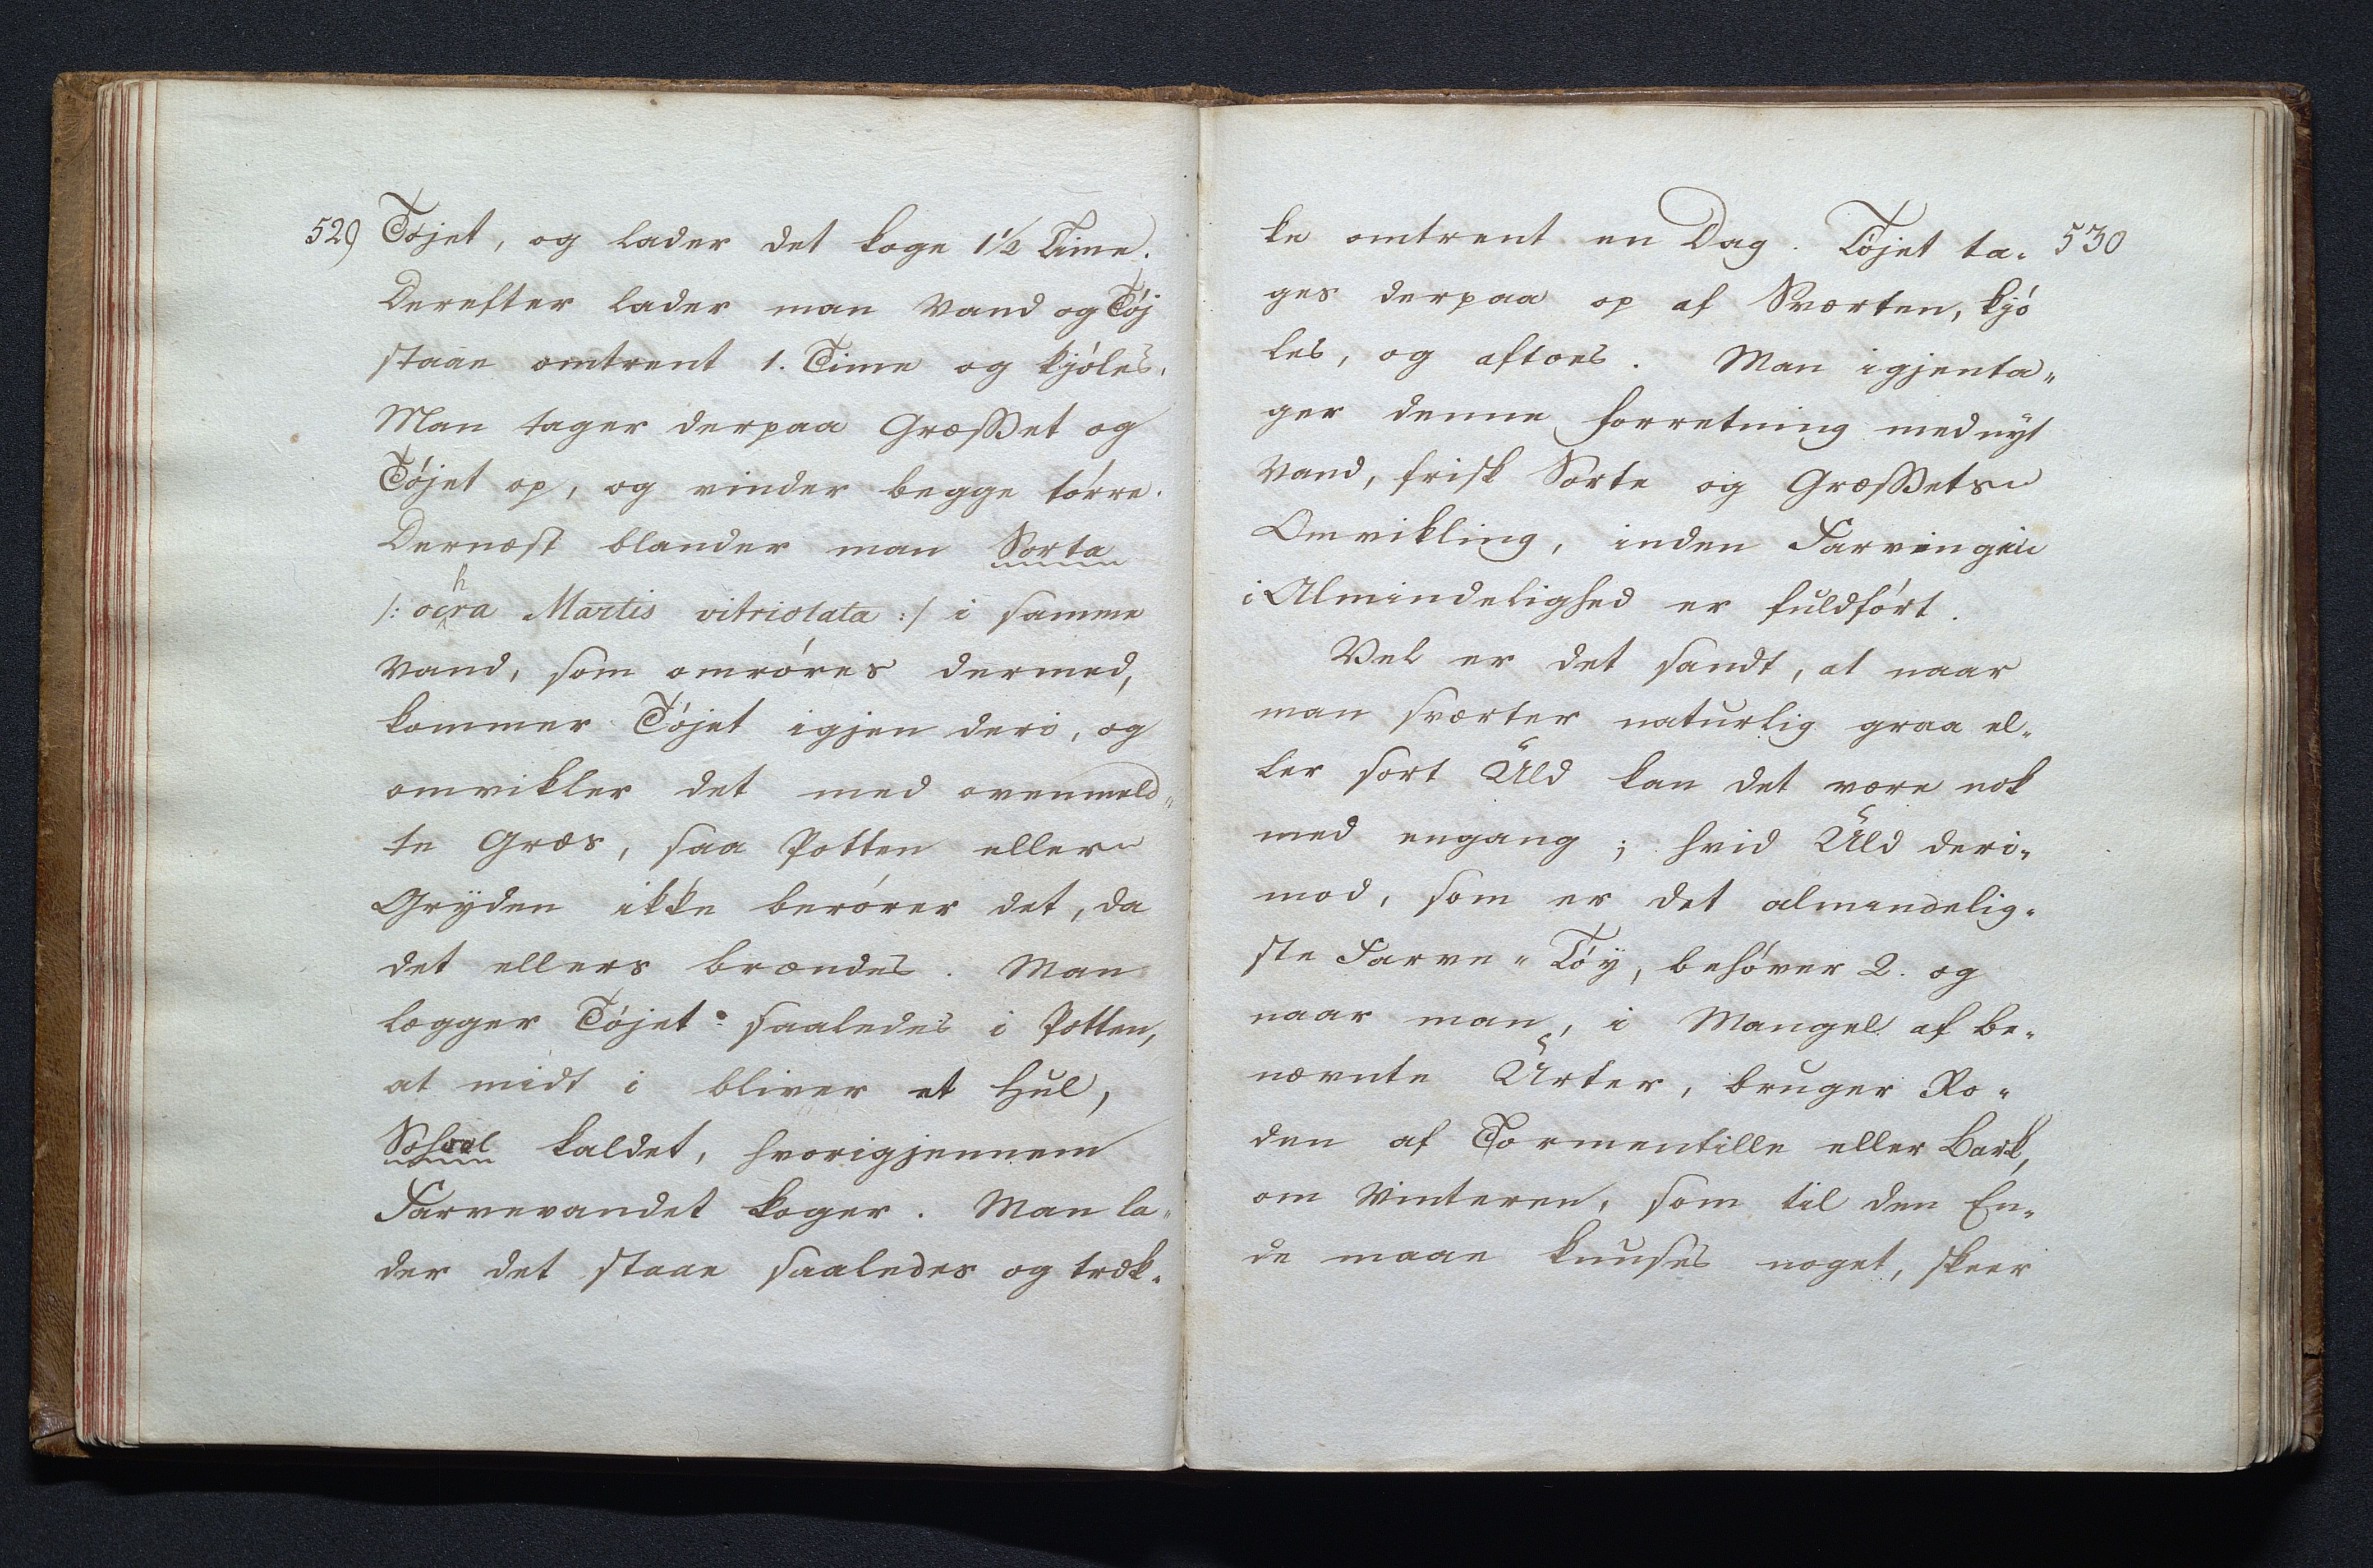 529) Tøjet, og lader det koge 1½ Time.
Derefter lader man Vand og Tøj
staae omtrent 1. Time og kjøles.
Man tager derpaa Græsset og
Tøjet op, og vinder begge tørre.
Dernæst blander man Sorta
/: ochra Martis vitriolata :/ i samme
Vand, som omrøres dermed,
kommer Tøjet igjen deri, og
omvikler det med ovenmeld„
te Græs, saa Potten eller
Gryden ikke berører det, da
det ellers brændes. Man
lægger Tøjet saaledes i Potten,
at midt i bliver et Hul,
kaldet, hvorigjennem
Farvevandet koger. Man la„
der det staae saaledes og træk„
ke omtrent en Dag. Tøjet ta„ 530
ges derpaa op af Sværten, kjø
les, og aftoes. Man igjenta„
ger denne Forretning med nyt
Vand, frisk Sorte og Græssets
Omvikling, inden Farvingen
i Almindelighed er fuldført.
Vel er det sandt, at naar
man sværter naturlig graa el„
ler sort Uld kan det være nok
med engang; hvid Uld deri„
mod, som er det almindelig„
ste Farve„Tøÿ, behøver 2. og
naar man, i Mangel af be„
nævnte Urter, bruger Ro„
den af Tormentille eller Bark,
om Vinteren, som til den En„
de maae knuses noget, skeer